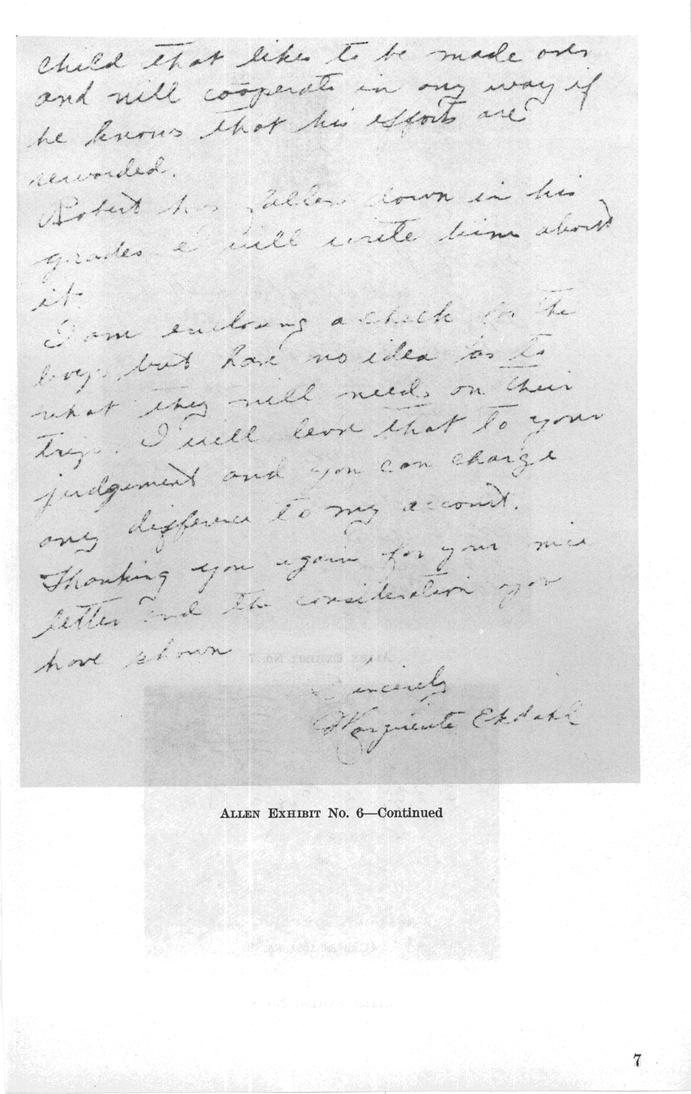 child that likes to be made over
and will cooperate in any way if
he knows that his efforts are
rewarded.
Robert has fallen down in his
grades & will write him about
it.
I am enclosing a check for the
boys but have no idea as to
what they will need on their
trip. I will leave that to your
judgement and you can charge
any difference to my account.
Thanking you again for your nice
letter and the consideration you
have shown
Sincerely
Marguerite Ekdahl
ALLEN EXHIBIT No. 6—Continued
7